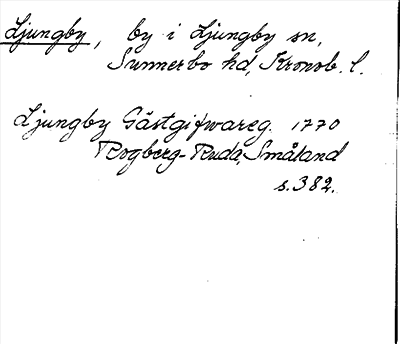 Ljungby, by i Ljungby sn,
Sunnerbo hd, Kronob. l.
Ljungby Gästgifwareg. 1770
Rogberg-Ruda, Småland
s.382.